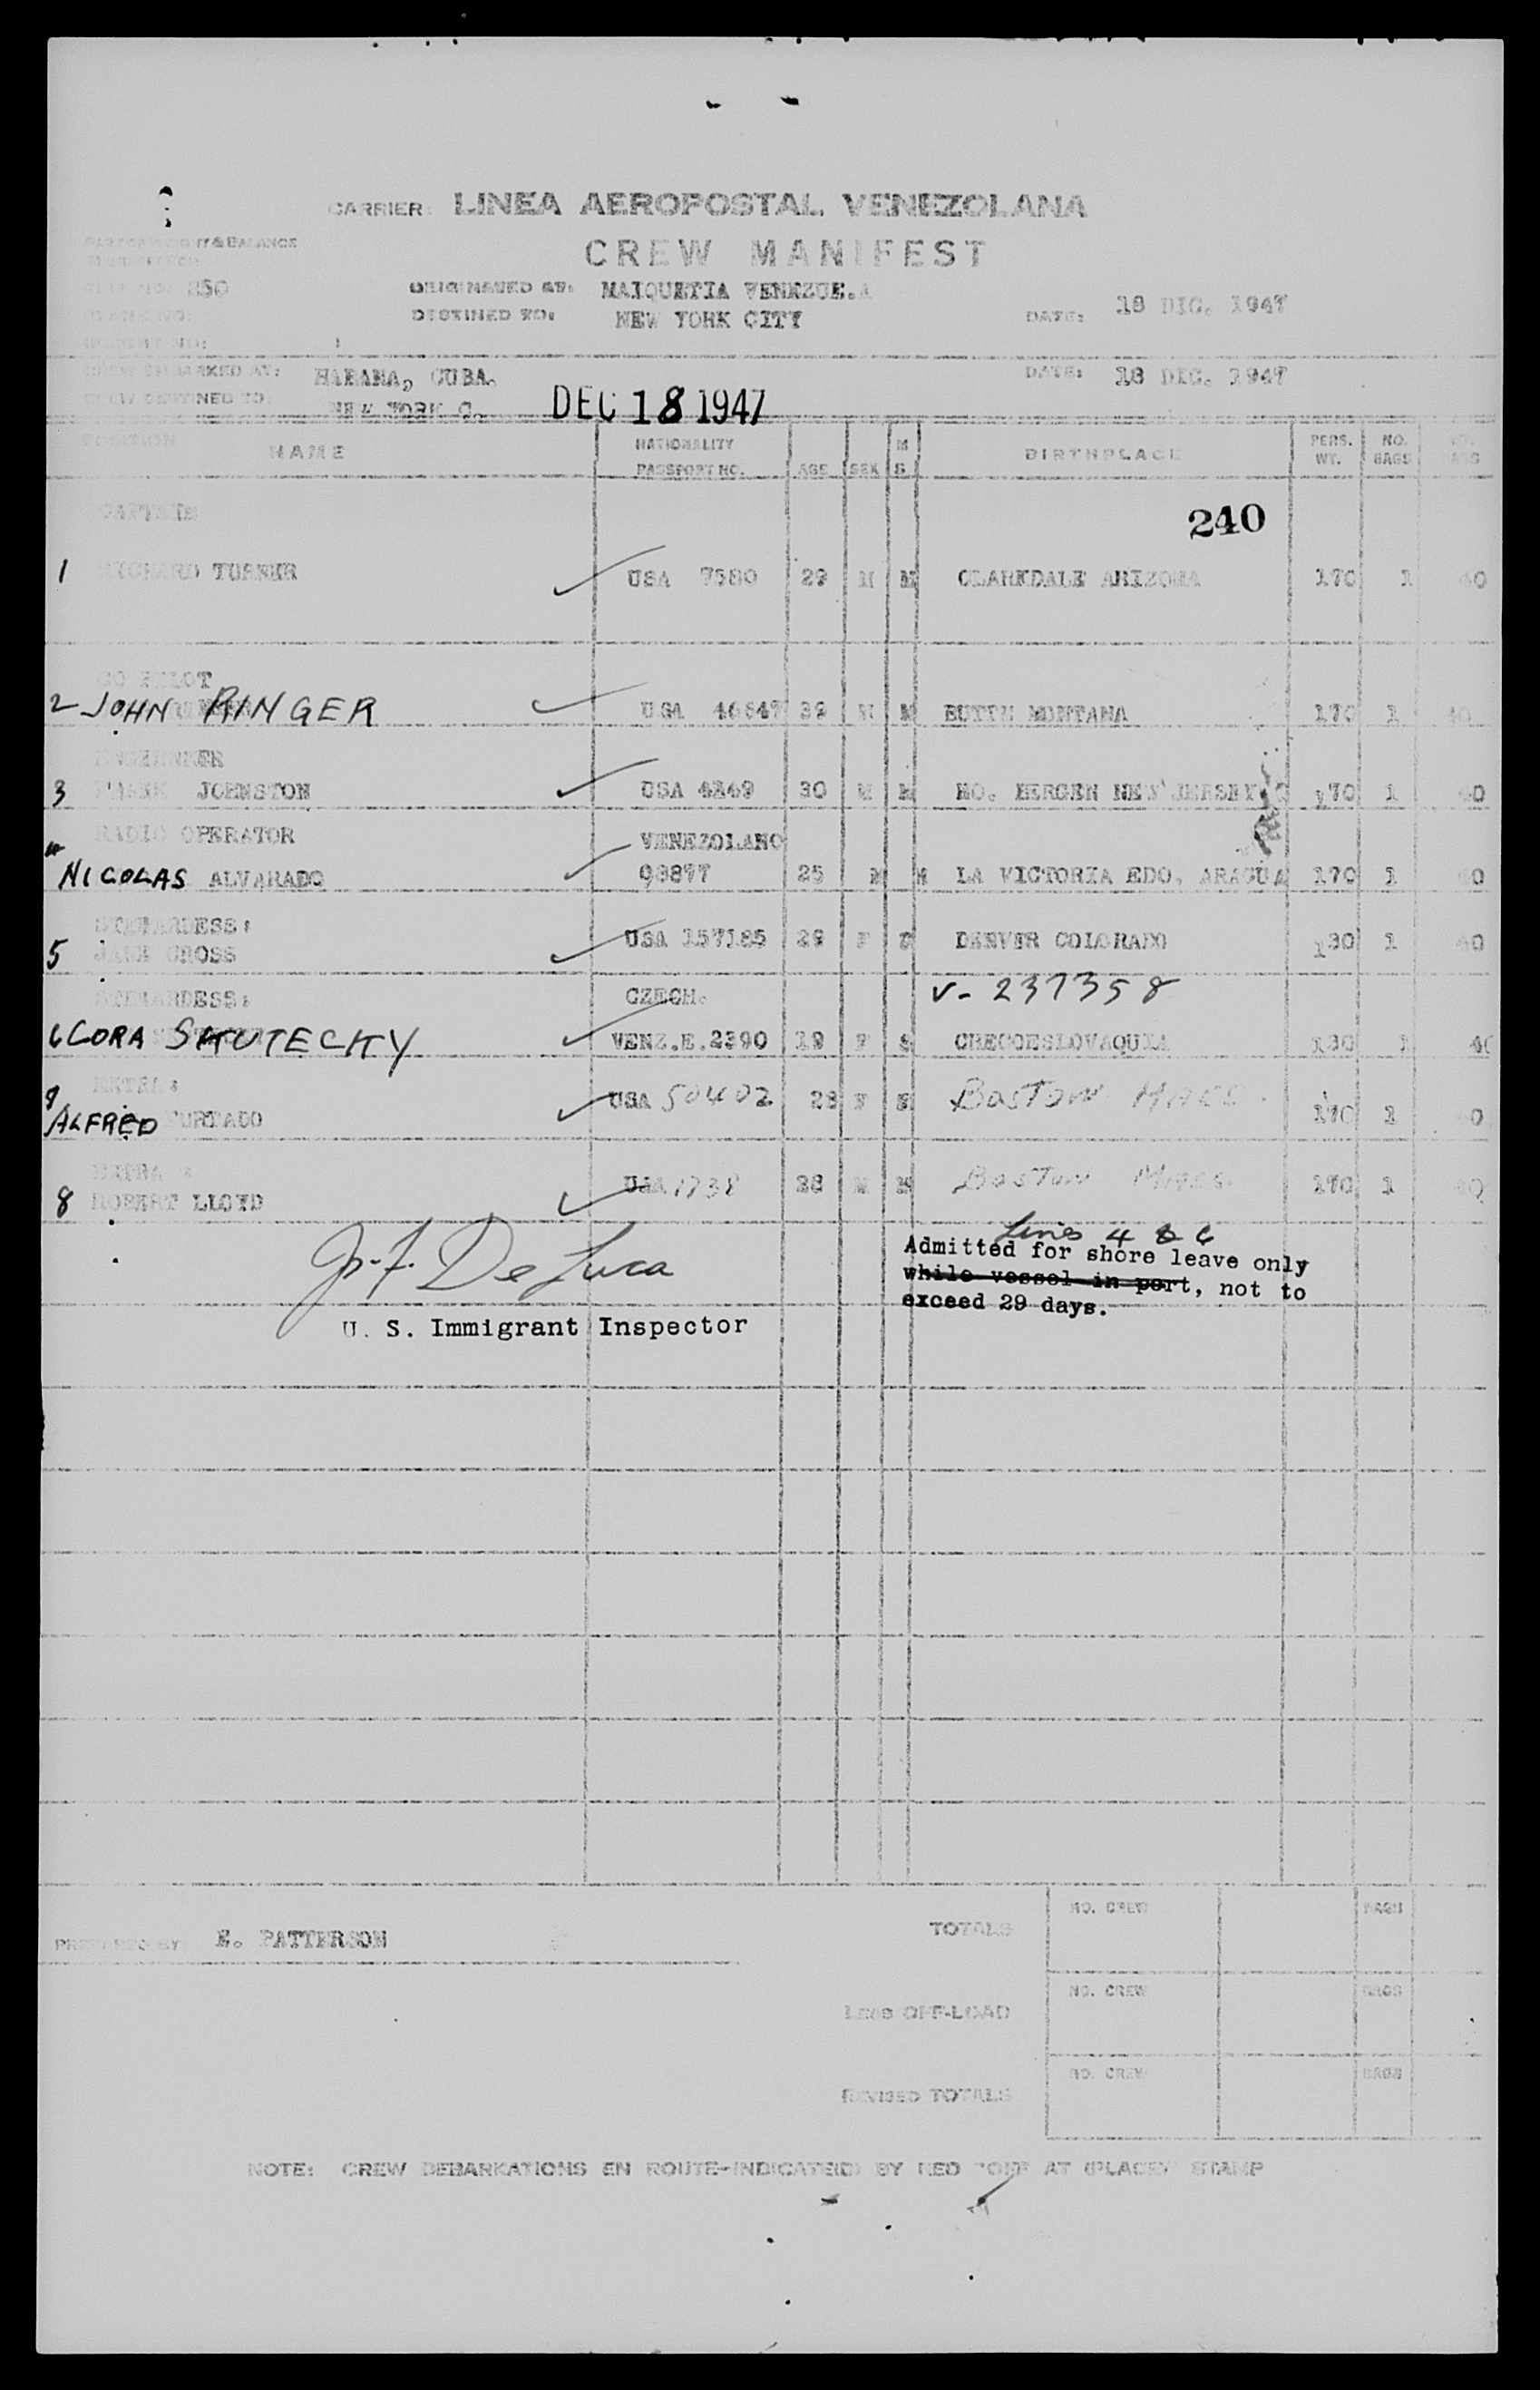 CARRIER: LINEA AEROPOSTAL VENEZOLANA
CREW MANIFEST
& BALANCE
350
ORIGINATED AT: MAIQUETIA VENEZUELA
DESTINED TO: NEW YORK CITY
DATE: 18 DIC. 1947
EMBARKED AT: HABANA, CUBA. DATE: 18 DIC. 1947
DESTINED TO: NEW YORK C. DEC 18 1947
POSITION
NAME NATIONALITY PASSPORT NO. AGE SEX M S BIRTHPLACE PERS. WT. NO. BAGS
CAPTAIN
240
1 RICHARD TURNER USA 7580 29 M M CLARKDALE ARIZONA 170 1 40
CO PILOT
2 JOHN RINGER USA 46847 39 M M BUTTE MONTANA 170 1 40
ENGINEER
3 JOHNSTON USA 4249 30 M M NO. BERGEN NEW JERSEY 170 1 40
RADIO OPERATOR VENEZOLANO
4 NICOLAS ALVARADO 98877 25 M M LA VICTORIA EDO. ARAGUA 170 1 40
STEWARDESS:
5 GROSS USA 157185 29 F DENVER COLORADO 130 1 40
STEWARDESS: CZECH. V- 237358
6 CORA SKUTECKY VENZ.E.2390 19 F S CHECOESLOVAQUIA 130 1 40
EXTRA:
7 ALFRED FURTADO USA 50402 28 Boston Mass. 170 1 40
EXTRA :
8 ROBERT LLOYD USA 1738 28 M M Boston Mass. 170 1 40
Lines 4 & 6
Admitted for shore leave only
while vessel in port, not to
exceed 29 days.
J. F. De Luca
U. S. Immigrant Inspector
PREPARED BY E. PATTERSON
TOTALS NO. CREW BAGS
LESS OFF-LOAD NO. CREW BAGS
REVISED TOTALS NO. CREW BAGS
NOTE: CREW DEBARKATIONS EN ROUTE-INDICATED BY RED "OFF AT (PLACE)" STAMP